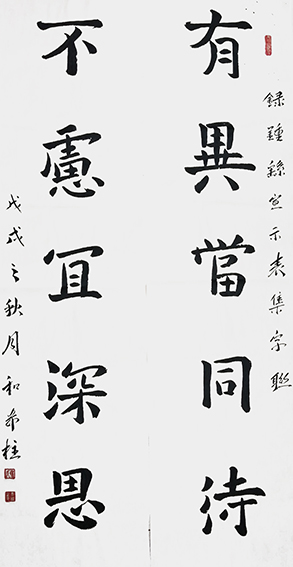 錄鍾繇宣示表集字聯
有異當同待
不慮宜深思
戊戌之秋月和希柱